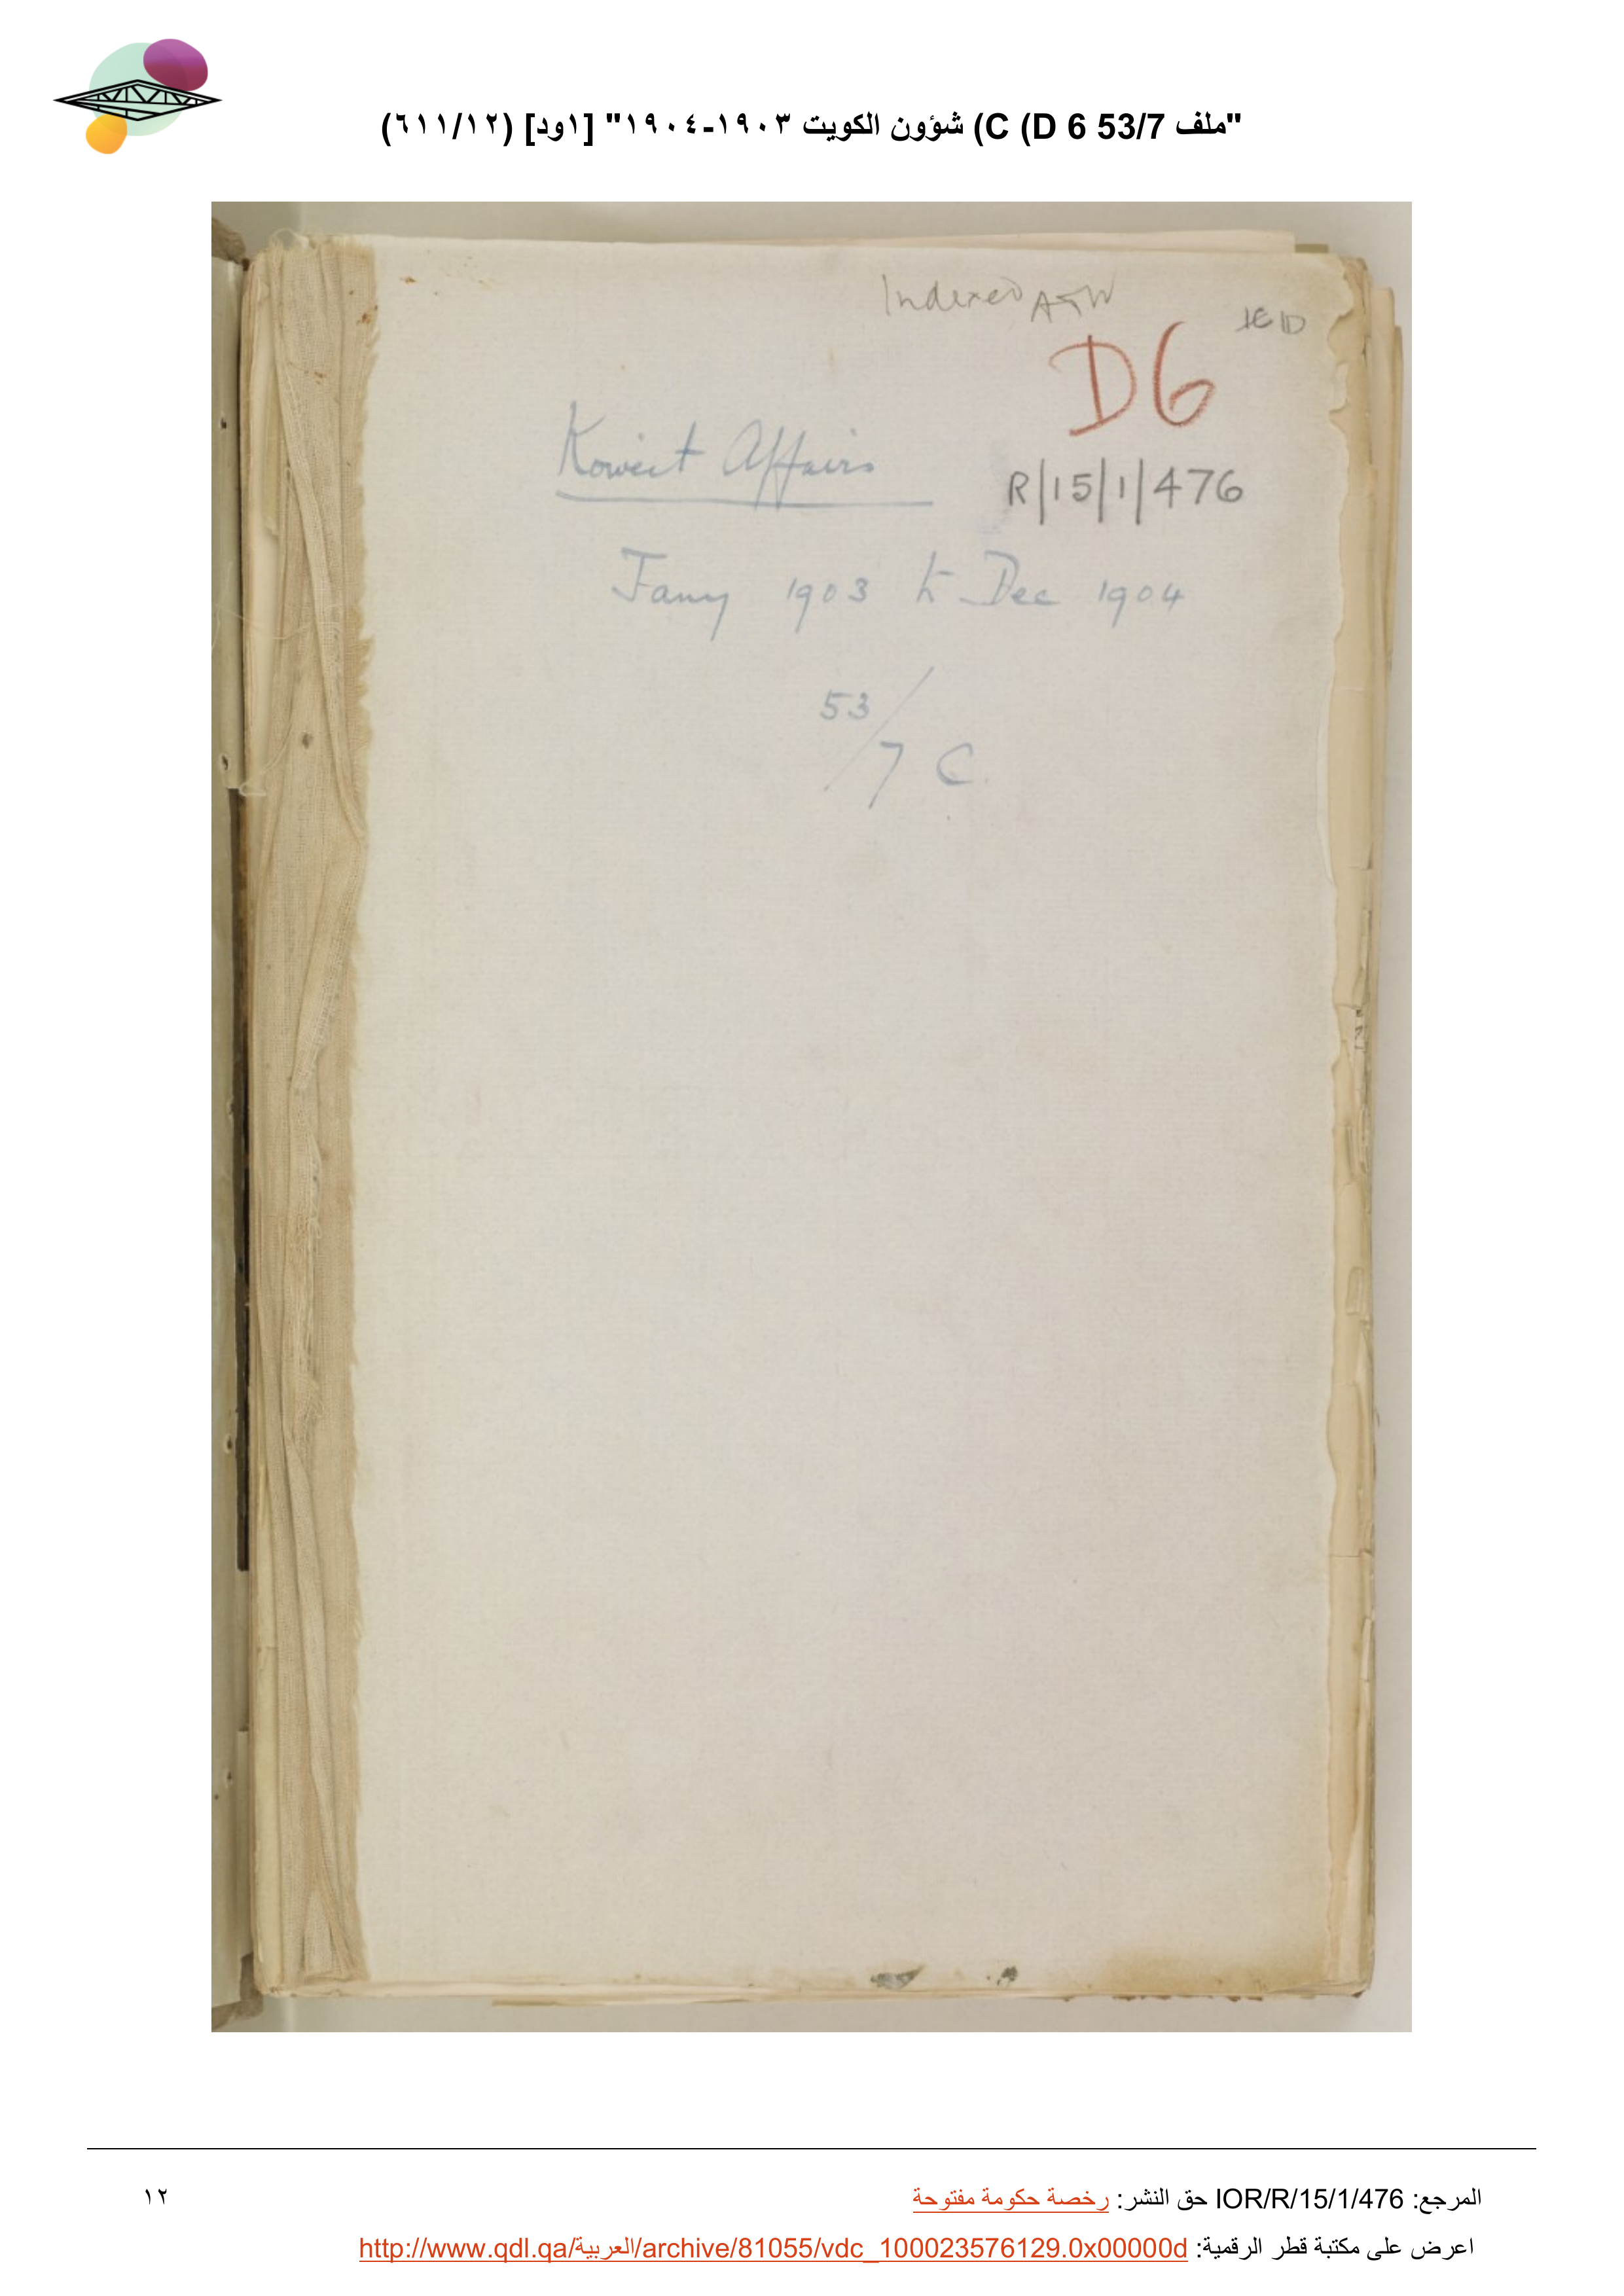 "ملف 53/7 C (D 6) شؤون الكويت ١٩٠٣-١٩٠٤" [١ود] (٦١١/١٢)
Indexed
D6
Koweit Affairs
R/15/1/476
Jany 1903 to Dec 1904
53/7 C.
المرجع: IOR/R/15/1/476 حق النشر: رخصة حكومة مفتوحة
١٢
اعرض على مكتبة قطر الرقمية: http://www.qdl.qa/العربية/archive/81055/vdc_100023576129.0x00000d